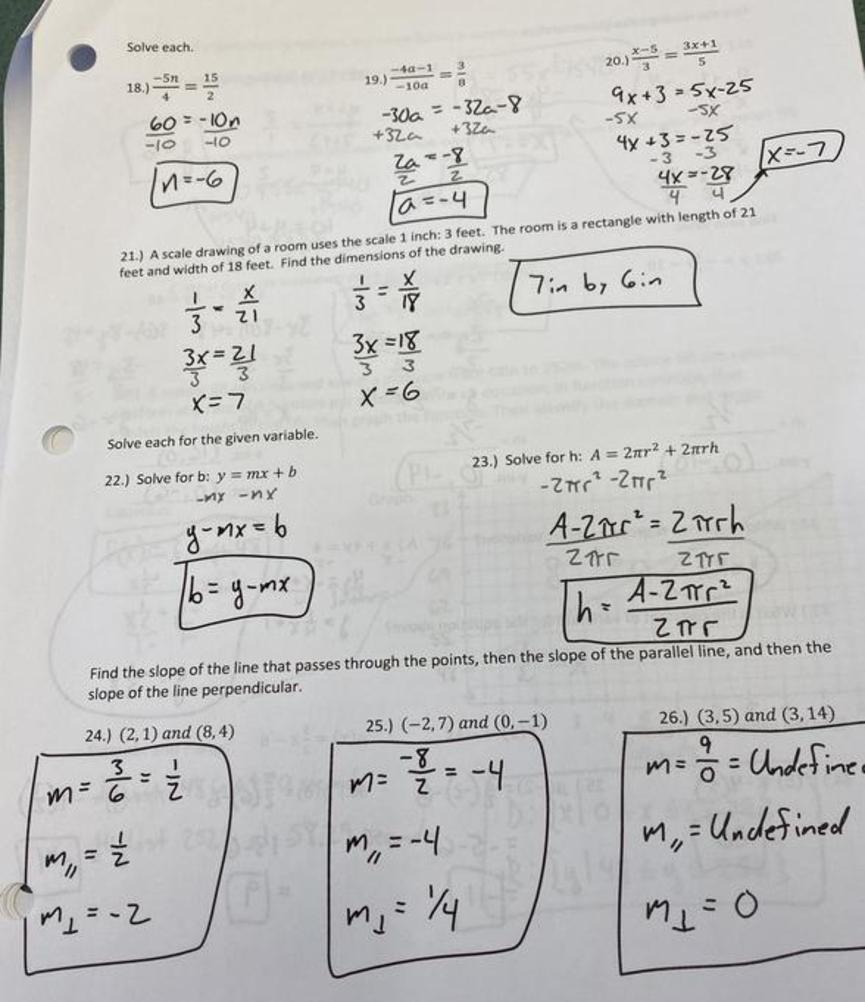 Solve each.
18.) -5n/4 = 15/2
60 = -10n
-10 -10
n=-6
19.) -4a-1/-10a = 3/8
-30a = -32a-8
+32a +32a
2a = -8
2 2
a=-4
20.) x-5/3 = 3x+1/5
9x+3 = 5x-25
-5x -5x
4x+3 = -25
-3 -3
4x = -28
4 4
x=-7
21.) A scale drawing of a room uses the scale 1 inch: 3 feet. The room is a rectangle with length of 21
feet and width of 18 feet. Find the dimensions of the drawing.
1/3 = x/21
3x = 21
3 3
x=7
1/3 = x/18
3x = 18
3 3
x=6
7in by 6in
Solve each for the given variable.
22.) Solve for b: y = mx + b
-mx -mx
y-mx = b
b = y-mx
23.) Solve for h: A = 2πr² + 2πrh
-2πr² -2πr²
A-2πr² = 2πrh
2πr 2πr
h = A-2πr²/2πr
Find the slope of the line that passes through the points, then the slope of the parallel line, and then the
slope of the line perpendicular.
24.) (2, 1) and (8, 4)
m = 3/6 = 1/2
m// = 1/2
m⊥ = -2
25.) (-2, 7) and (0, -1)
m = -8/2 = -4
m// = -4
m⊥ = 1/4
26.) (3, 5) and (3, 14)
m = 9/0 = Undefine
m// = Undefined
m⊥ = 0